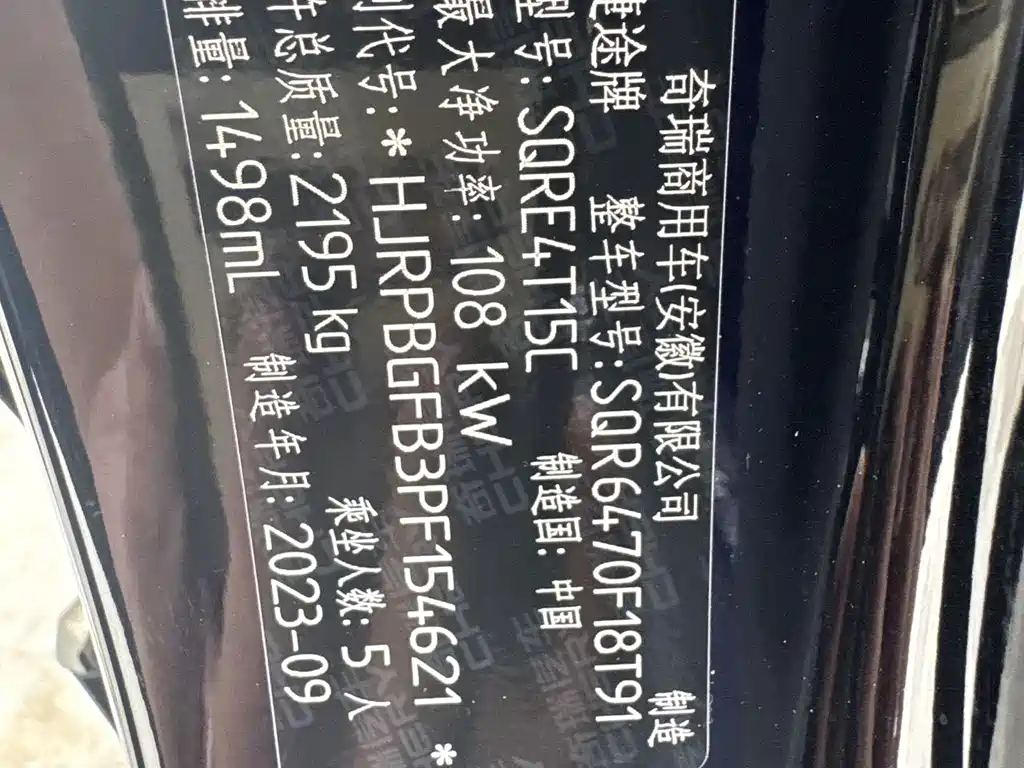 奇瑞商用车(安徽)有限公司 制造
捷途牌 整车型号:SQR6470F18T91
型号:SQRE4T15C 制造国:中国
最大净功率:108 kW
别代号:*HJRPBGFB3PF154621*
许总质量:2195kg 乘坐人数:5人
排量:1498mL 制造年月:2023-09